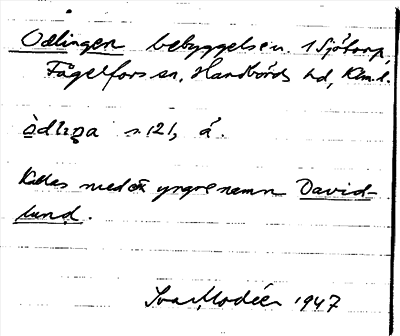 Odlingen bebyggelsen. 1 Sjötorp,
Fågelfors sn, Handbörds hd, Klm. l.
òdlıŋa n. 121, á.
Kallas med ett yngre namn David-
lund.
Ivar Modéer 1947